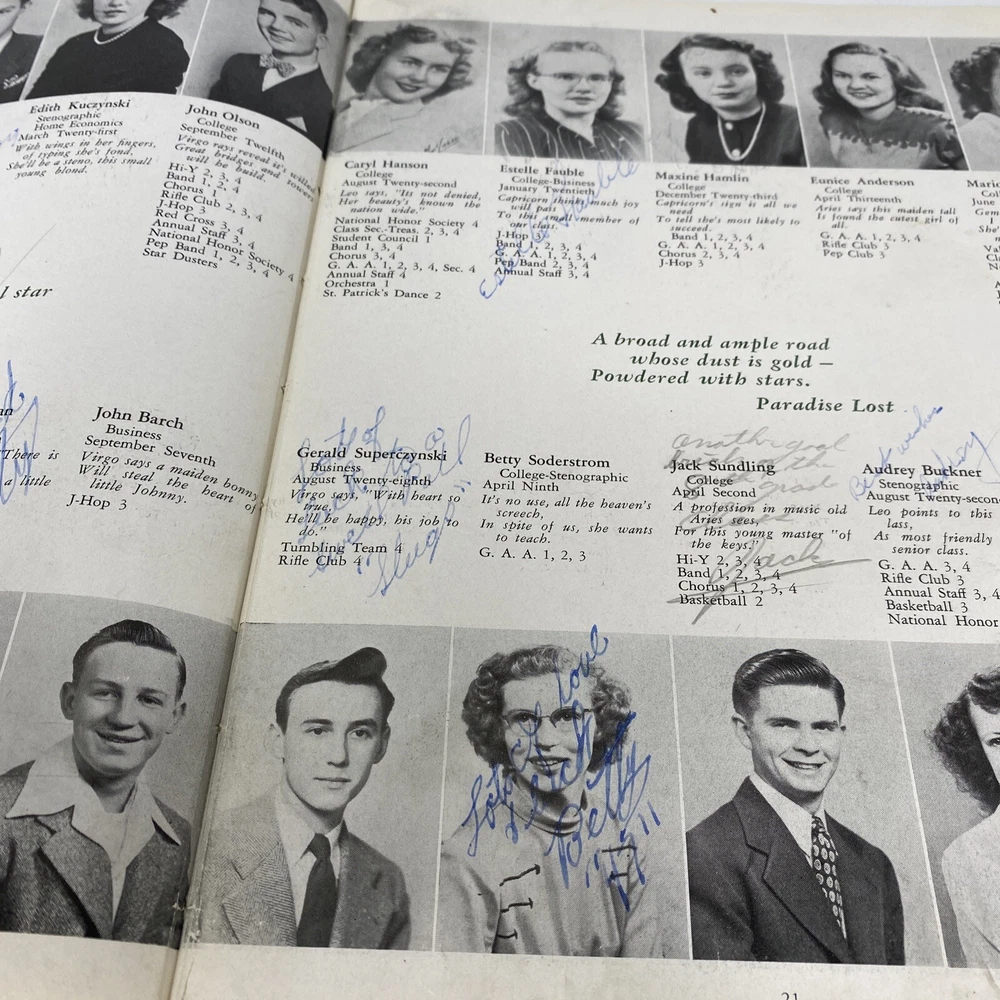 Edith Kuczynski
Stenographic
Home Economics
March Twenty-first
With wings in her fingers,
of typing she's fond,
She'll be a steno, this small
young blond.
John Olson
College
September Twelfth
Virgo rays reveal it's willed
Great bridges and towers
will be build.
Hi-Y 2, 3, 4
Band 1, 2, 4
Chorus 1
Rifle Club 2, 3, 4
J-Hop 3
Red Cross 3, 4
Annual Staff 3, 4
National Honor Society 4
Pep Band 1, 2, 3, 4
Star Dusters
l star
John Barch
Business
September Seventh
Virgo says a maiden bonny
Will steal the heart of
little Johnny.
J-Hop 3
There is
a little
Caryl Hanson
College
August Twenty-second
Leo says, "Its not denied,
Her beauty's known the
nation wide."
National Honor Society 4
Class Sec.-Treas. 2, 3, 4
Student Council 1
Band 1, 3, 4
Chorus 3, 4
G. A. A. 1, 2, 3, 4, Sec. 4
Annual Staff 4
Orchestra 1
St. Patrick's Dance 2
Estelle Fauble
College-Business
January Twentieth
Capricorn thinks much joy
will pass
To this small member of
our class.
J-Hop 3
Band 1, 2, 3, 4
G. A. A. 1, 2, 3, 4
Pep Band 2, 3, 4
Annual Staff 3, 4
Estelle Fauble
Maxine Hamlin
College
December Twenty-third
Capricorn's sign is all we
need
To tell she's most likely to
succeed.
Band 1, 2, 3, 4
G. A. A. 1, 2, 3, 4
Chorus 2, 3, 4
J-Hop 3
Eunice Anderson
College
April Thirteenth
Aries says this maiden tall
Is found the cutest girl of
all.
G. A. A. 1, 2, 3, 4
Rifle Club 3
Pep Club 3
A broad and ample road
whose dust is gold —
Powdered with stars.
Paradise Lost
Lots of
luck to a
swell Pal
"Slug"
Gerald Superczynski
Business
August Twenty-eighth
Virgo says, "With heart so
true,
He'll be happy, his job to
do."
Tumbling Team 4
Rifle Club 4
Betty Soderstrom
College-Stenographic
April Ninth
It's no use, all the heaven's
screech,
In spite of us, she wants
to teach.
G. A. A. 1, 2, 3
another good
Jack
Jack Sundling
College
April Second
A profession in music old
Aries sees,
For this young master "of
the keys."
Hi-Y 2, 3, 4
Band 1, 2, 3, 4
Chorus 1, 2, 3, 4
Basketball 2
Best wishes
Audrey Buckner
Stenographic
August Twenty-secon
Leo points to this
lass,
As most friendly
senior class.
G. A. A. 3, 4
Rifle Club 3
Annual Staff 3, 4
Basketball 3
National Honor
Lots of love
& luck
Betty
21